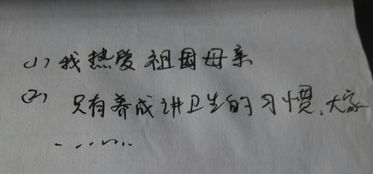 (1) 我热爱祖国母亲
(2) 只有养成讲卫生的习惯,大家
.......